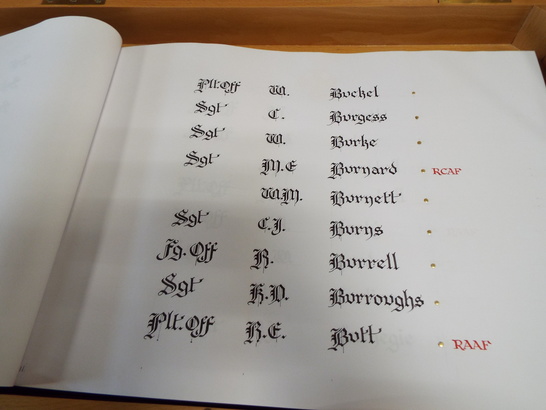 Plt.Off W. Buckel
Sgt C. Burgess
Sgt W. Burke
Sgt M.E Burnard RCAF
W.M. Burnett
Sgt C.J. Burns
Fg. Off R. Burrell
Sgt K.D. Burroughs
Plt. Off R.E. Butt RAAF